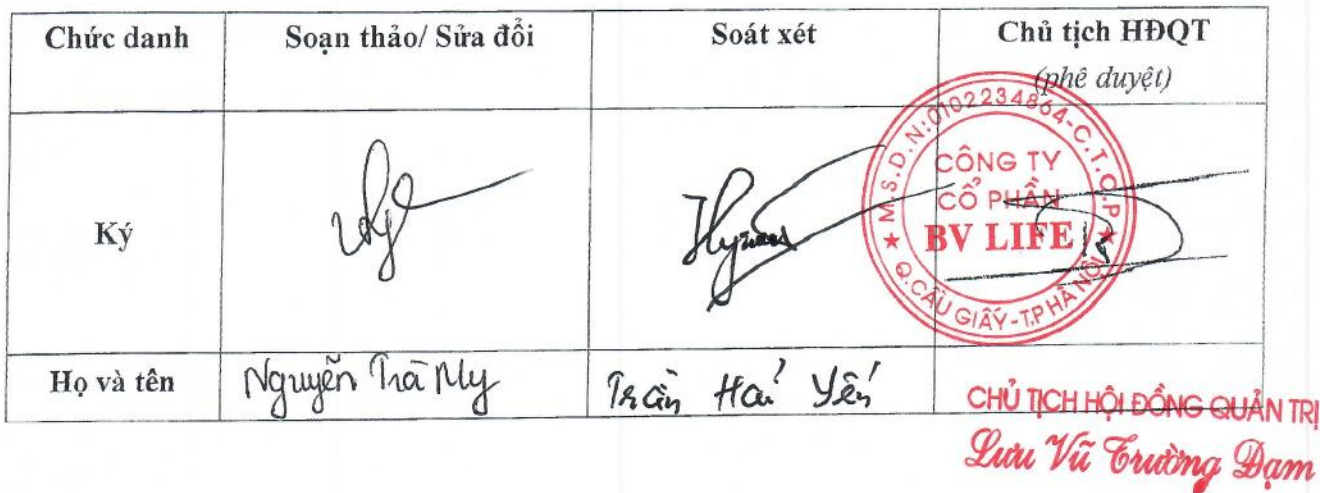 Chức danh
Soạn thảo/ Sửa đổi
Soát xét
Chủ tịch HĐQT
(phê duyệt)
Ký
M.S.D.N:0102234864-C.T.C.P
CÔNG TY
CỔ PHẦN
BV LIFE
Q.CẦU GIẤY-T.P HÀ NỘI
Họ và tên
Nguyễn Trà My
Trần Hải Yến
CHỦ TỊCH HỘI ĐỒNG QUẢN TRỊ
Lưu Vũ Trường Đạm